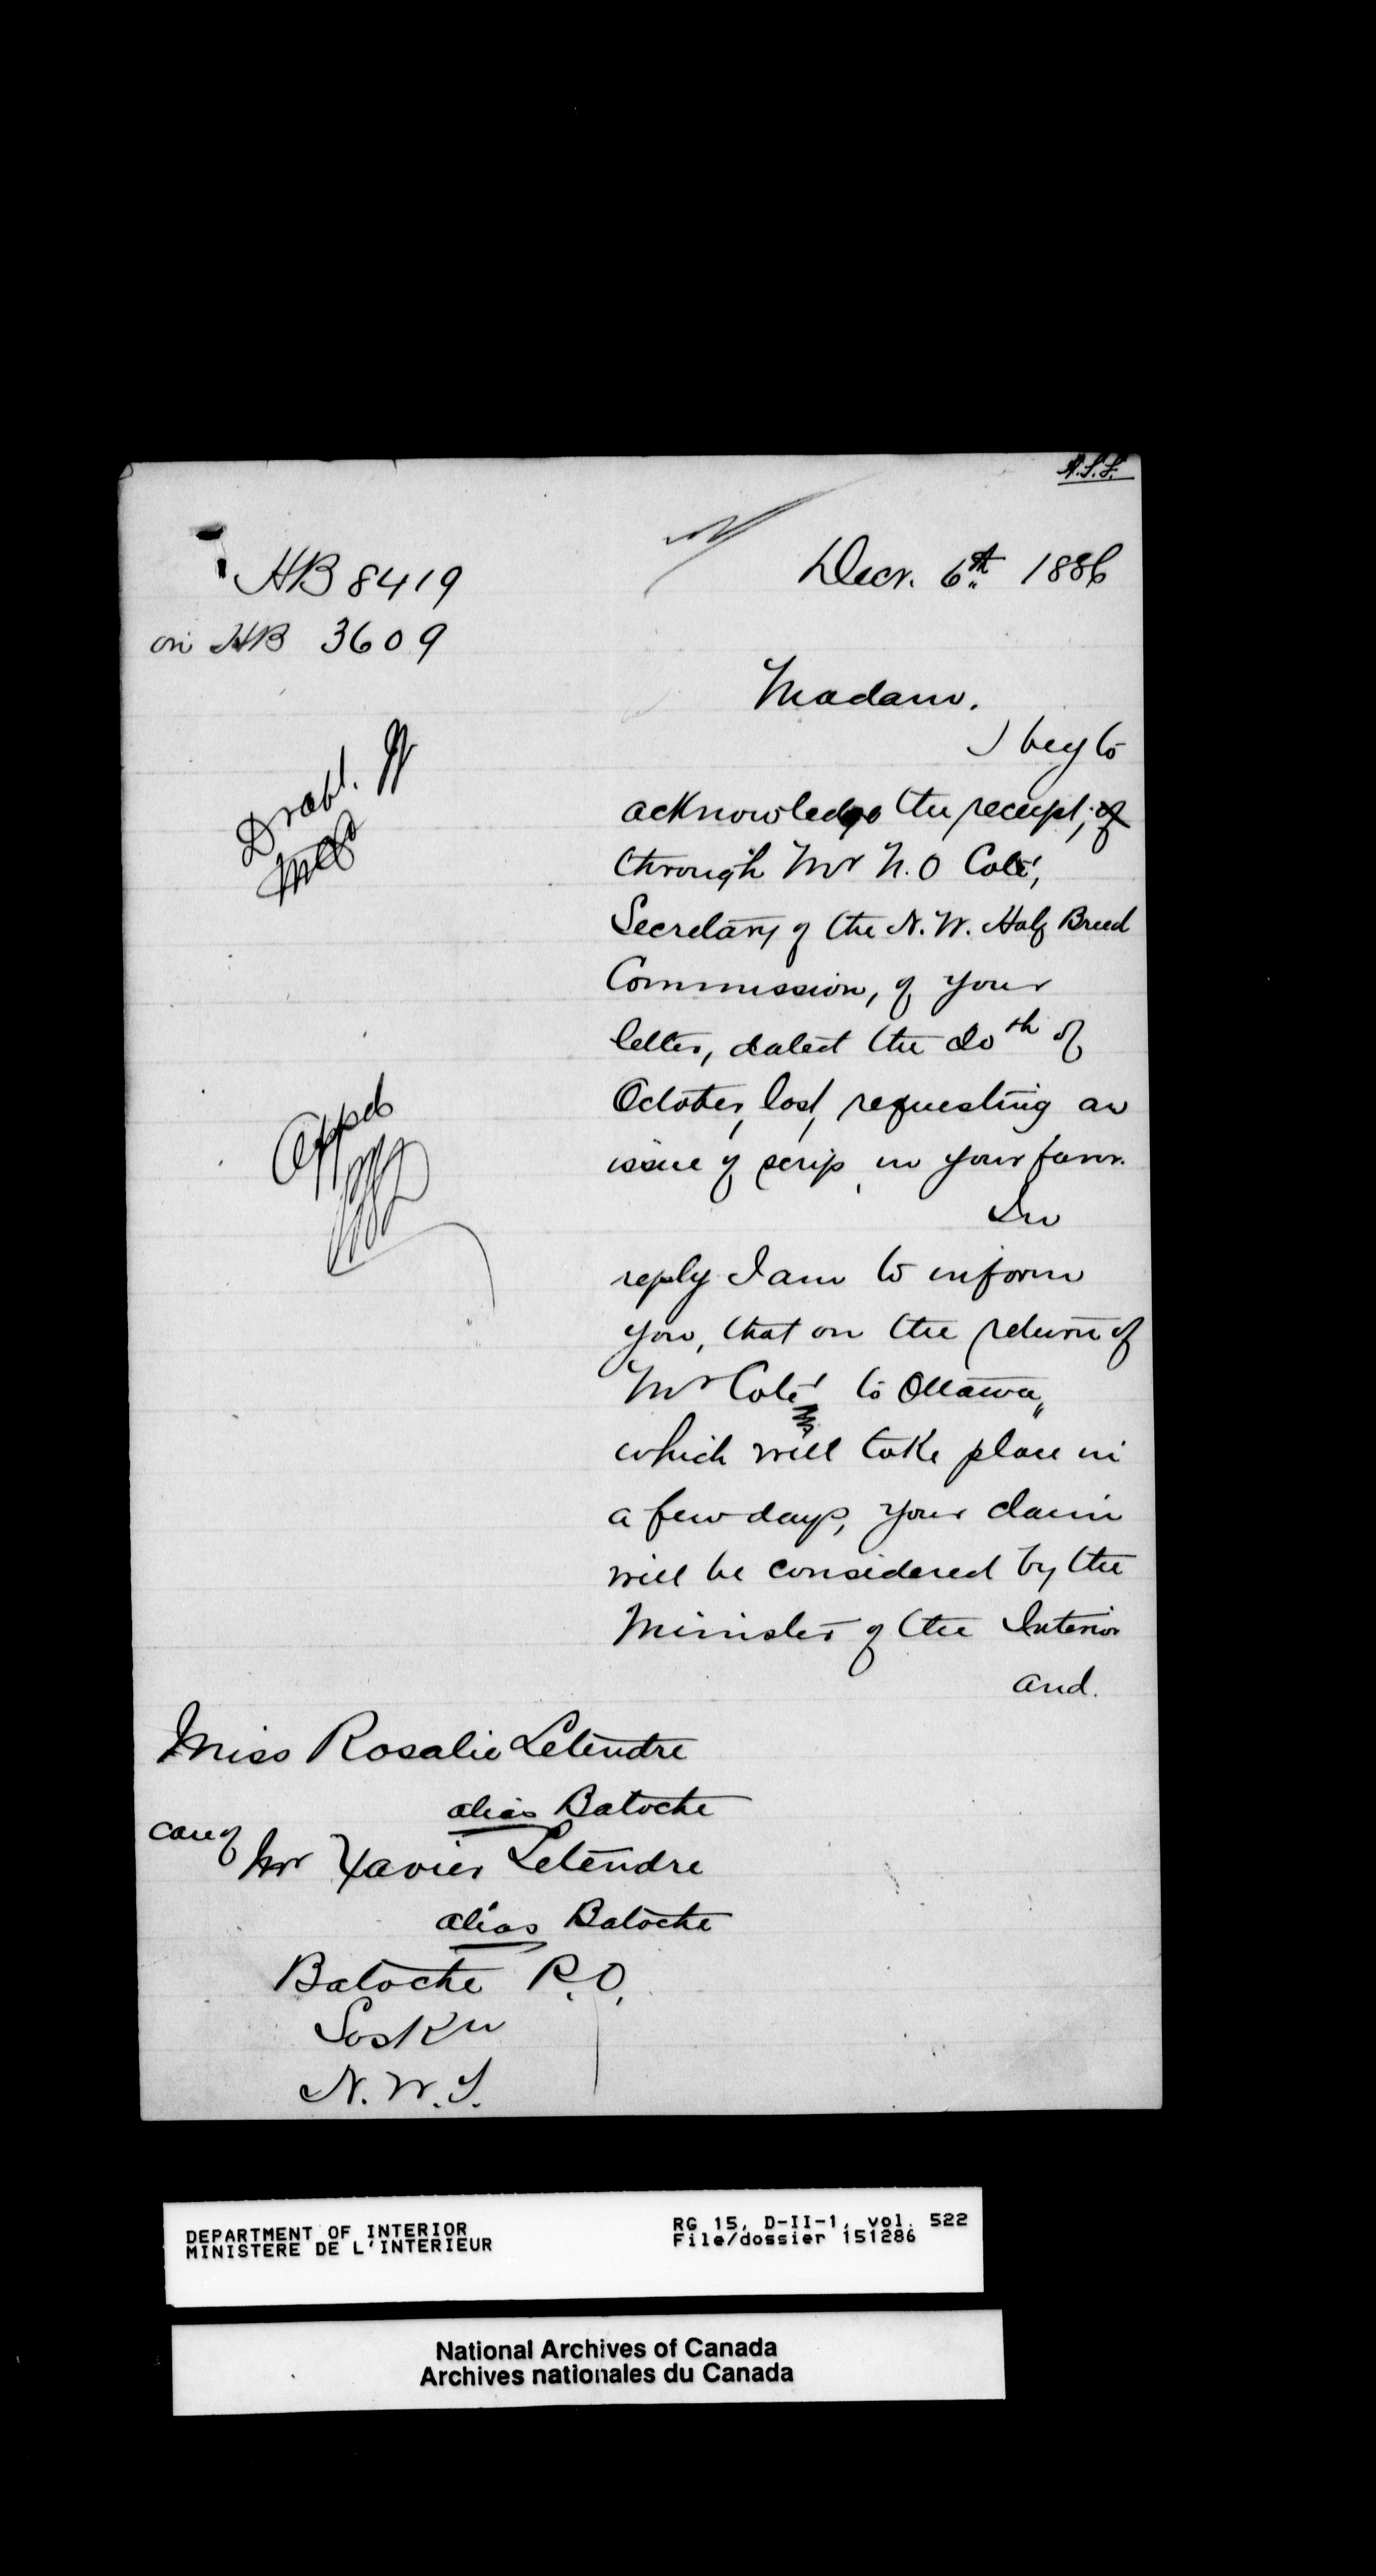 A.S.S.
HB 8419
on HB 3609
Decr. 6th 1886
Madam,
I beg to
acknowledge the receipt, of
through Mr N.O Coté,
Secretary of the N.W. Half Breed
Commission, of your
letter, dated the 20th of
October, last, requesting an
issue of scrip in your favor.
In
reply I am to inform
you, that on the return of
Mr Coté to Ottawa,
which will take place in
a few days, your claim
will be considered by the
Minister of the Interior
and.
Draft.
Appd
Miss Rosalie Letendre
alias Batoche
care of Mr Xavier Letendre
alias Batoche
Batoche P.O.
Saskn
N.W.T.
DEPARTMENT OF INTERIOR
MINISTERE DE L'INTERIEUR
RG 15, D-II-1, vol. 522
File/dossier 151286
National Archives of Canada
Archives nationales du Canada